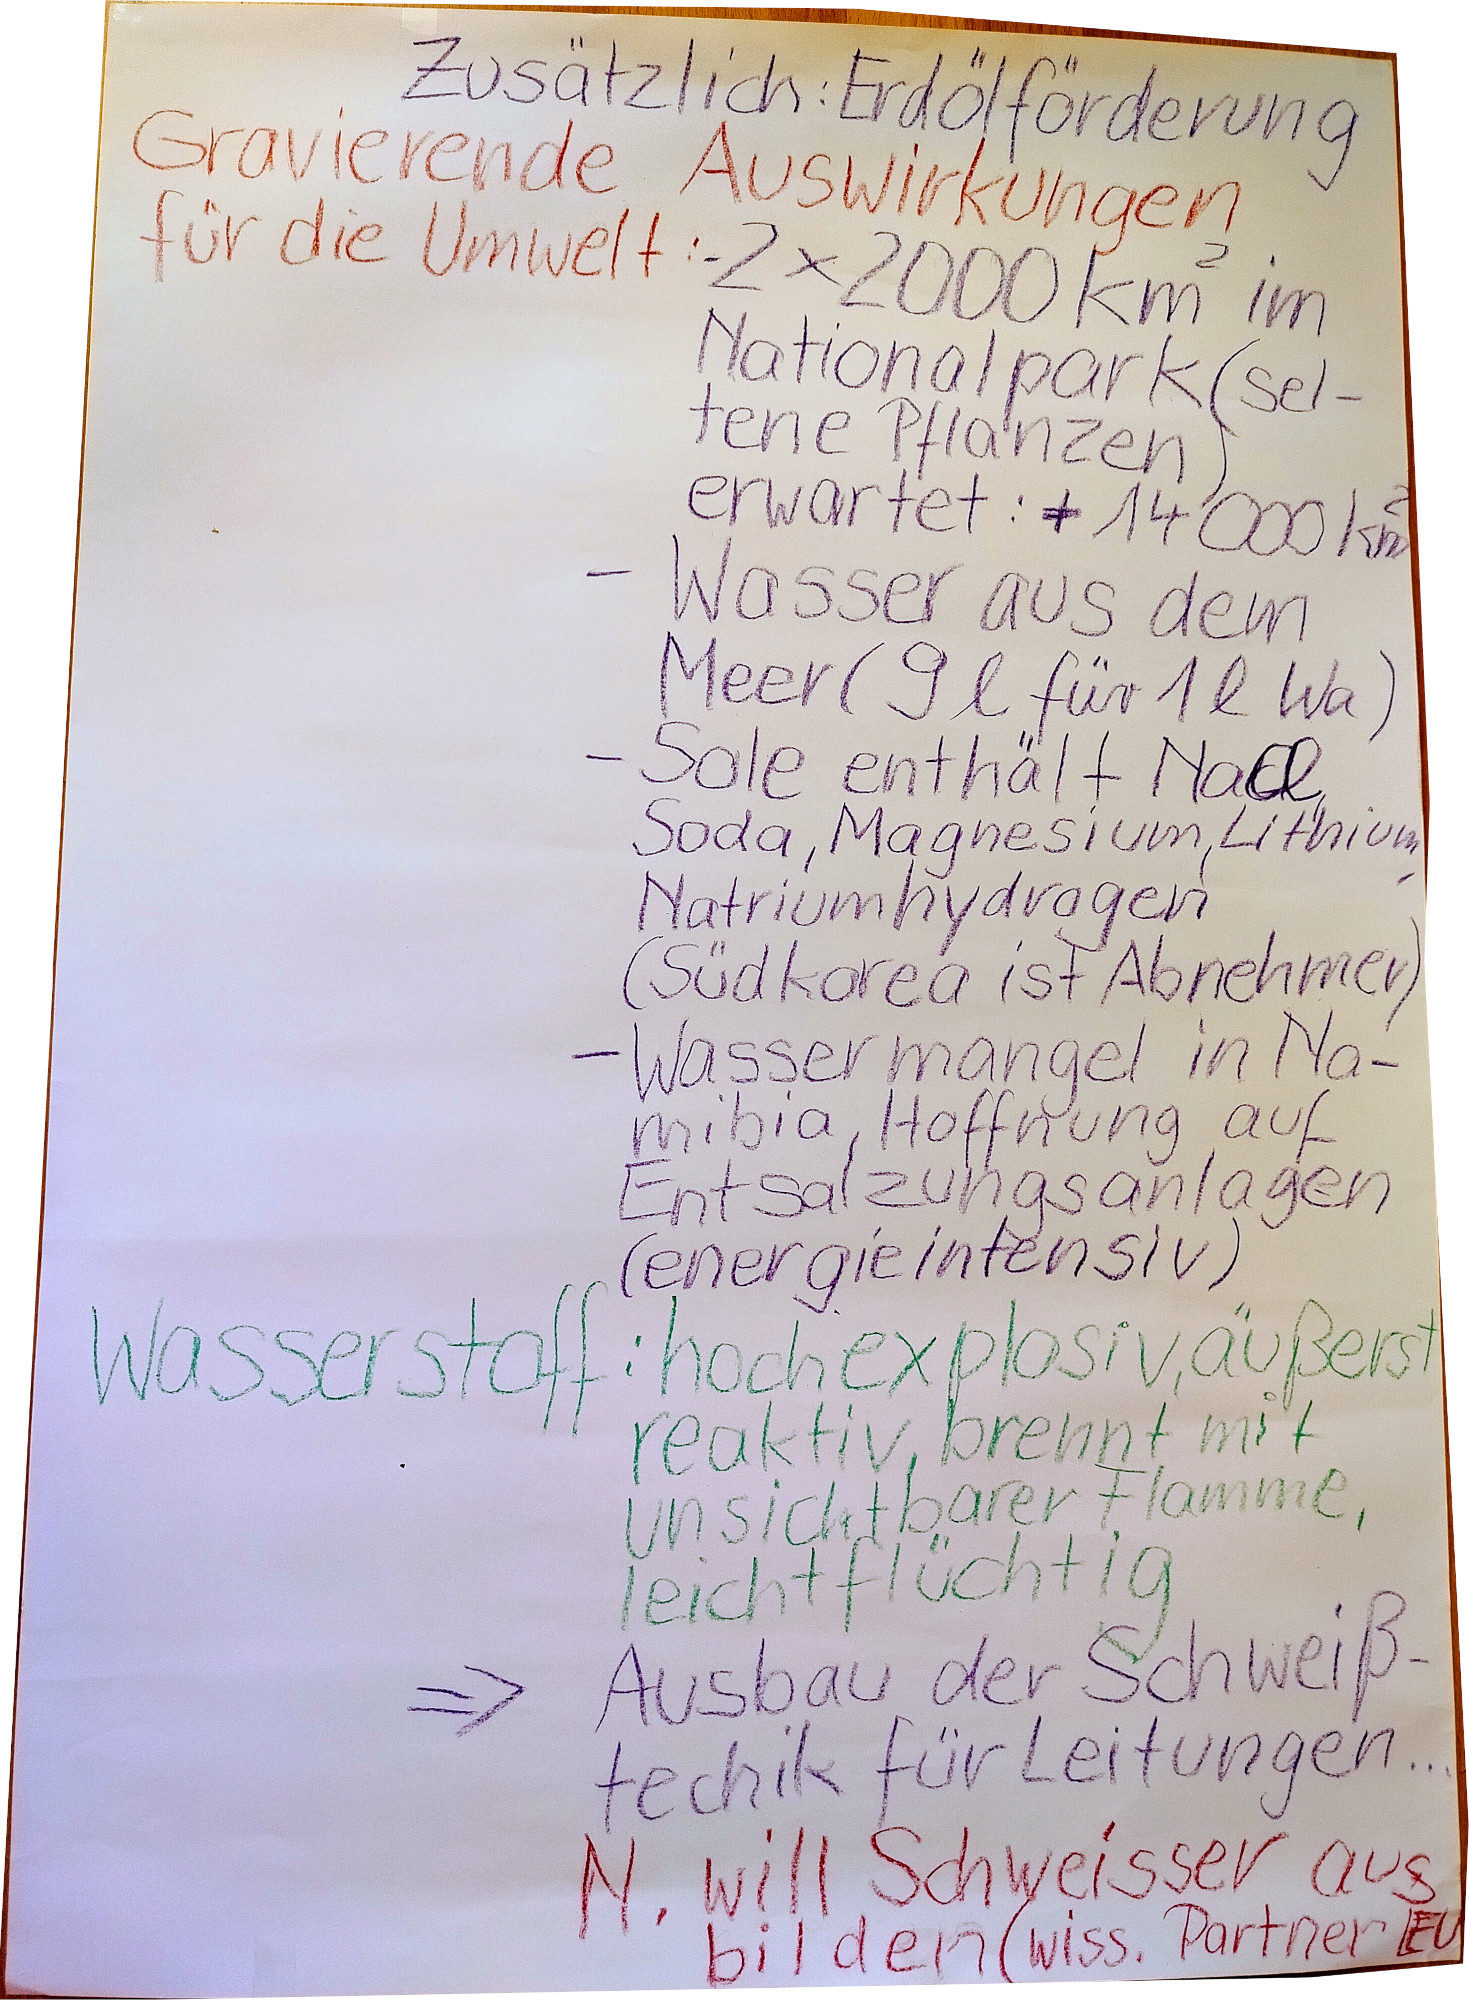 Zusätzlich: Erdölförderung
Gravierende Auswirkungen
für die Umwelt: - 2 x 2000 km² im
Nationalpark (sel-
tene Pflanzen)
erwartet: + 14 000 km²
- Wasser aus dem
Meer (9 l für 1 l Wa)
- Sole enthält NaCl,
Soda, Magnesium, Lithium,
Natriumhydrogen
(Südkorea ist Abnehmer)
- Wassermangel in Na-
mibia, Hoffnung auf
Entsalzungsanlagen
(energieintensiv)
Wasserstoff: hochexplosiv, äußerst
reaktiv, brennt mit
unsichtbarer Flamme,
leichtflüchtig
=> Ausbau der Schweiß-
technik für Leitungen...
N. will Schweisser aus
bilden (wiss. Partner EU